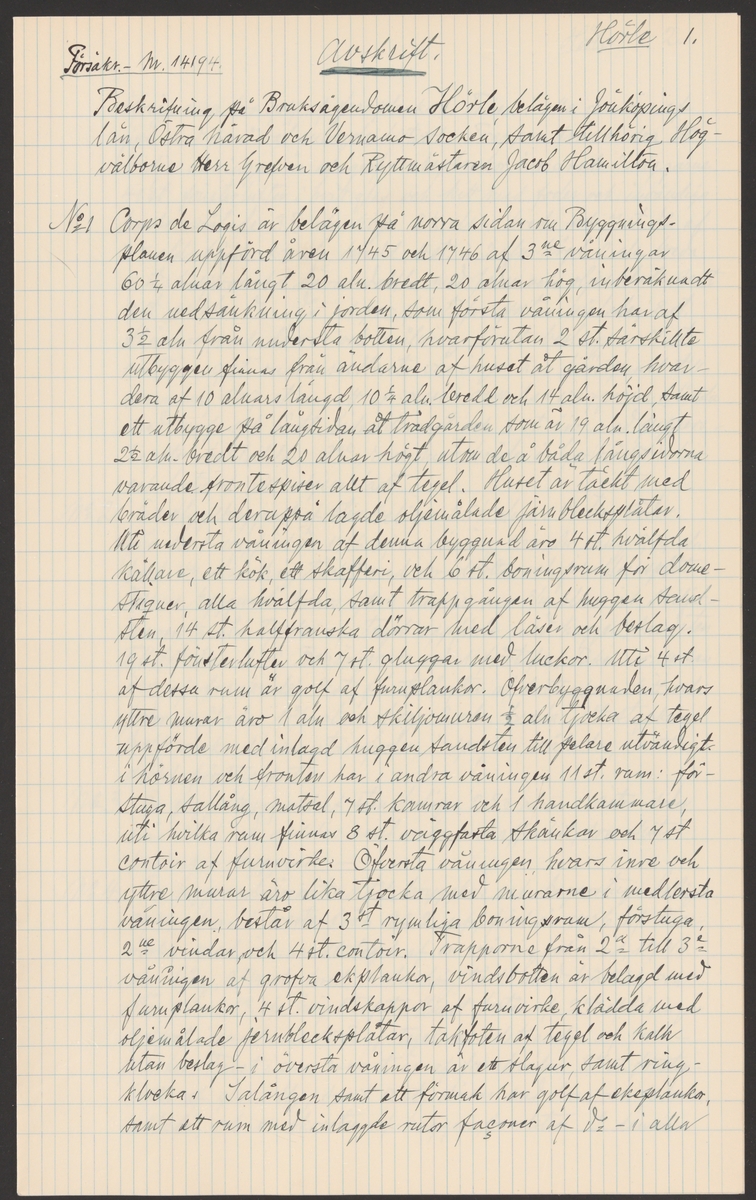 Hörle 1.
Försäkr.- Nr. 14194. Avskrift.
Beskrifning på Bruksegendomen Hörle, belägen i Jönköpings
län, Östra härad och Vernamo socken, samt tillhörig Hög-
välborne Herr Grefven och Ryttmästaren Jacob Hamilton.
No 1 Corps de Logis är belägen på norra sidan om Byggnings-
planen uppförd åren 1745 och 1746 af 3ne våningar
60 1/4 alnar långt 20 aln. bredt, 20 alnar hög, inberäknadt
den nedsänkning i jorden, som första våningen har af
3 1/2 aln från understa botten, hvarförutan 2 st. särskilte
utbyggen finnas från ändarne af huset åt gården hvar-
dera af 10 alnars längd, 10 1/4 aln. bredd och 14 aln. höjd, samt
ett utbygge på långsidan åt trädgården som är 19 aln. långt
2 1/2 aln. bredt och 20 alnar högt, utom de å båda långsidorna
varande frontespiser allt af tegel. Huset är täckt med
bräder och deruppå lagde oljemålade järnblecksplåtar.
Uti nedersta våningen af denna byggnad äro 4 st. hvälfda
källare, ett kök, ett skafferi, och 6 st. boningsrum för dome-
stiquer, alla hvälfda, samt trappgången af huggen sand-
sten, 14 st. halffranska dörrar med låser och beslag.
19 st. fönsterlufter och 7 st. gluggar med luckor. Uti 4 st
af dessa rum är golf af furuplankor. Öfverbyggnaden, hvars
yttre murar äro 1 aln och skiljomuren 1/2 aln tjocka af tegel
uppförde med inlagd huggen sandsten till pelare utvändigt.
i hörnen och fronten har i andra våningen 11 st. rum: för-
stuga, sallång, matsal, 7 st. kamrar och 1 handkammare,
uti hvilka rum finnas 8 st. väggfasta skänkar och 7 st
contoir af furuvirke. Öfversta våningen, hvars inre och
yttre murar äro lika tjocka med murarne i medlersta
våningen, består af 3 st rymliga boningsrum, förstuga,
2ne vindar, och 4 st. contoir. Trapporne från 2a till 3e
våningen af grofva ekplankor, vindsbotten är belagd med
furuplankor, 4 st. vindskappor af furuvirke, klädda med
oljemålade jernblecksplåtar, takfoten af tegel och kalk
utan beslag - i översta våningen är ett slagur, samt ring-
klocka. I salången samt ett förmak har golf af ekeplankor,
samt ett rum med inlagde rutor façoner af do - i alla